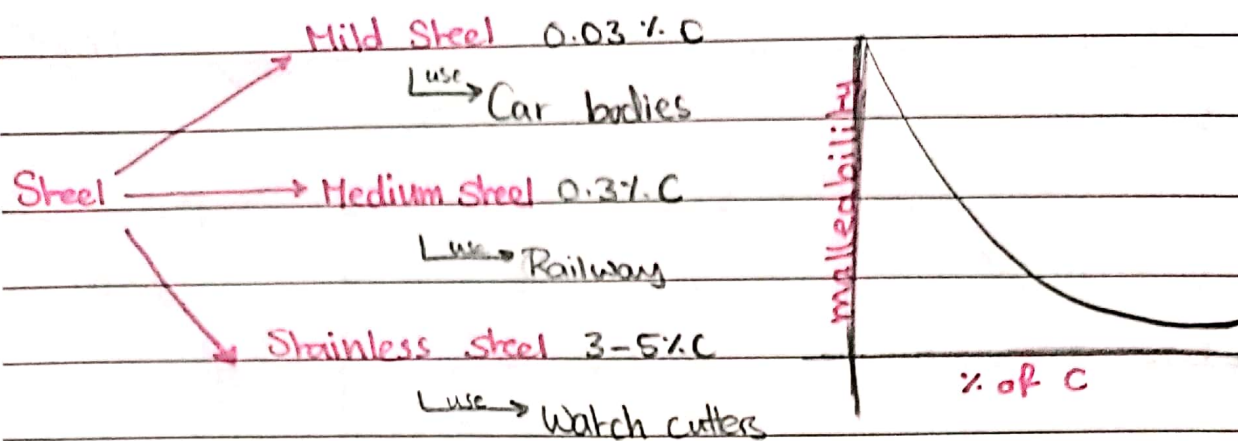 Mild Steel 0.03 % C
use
Car bodies
Steel
Medium steel 0.3% C
use
Railway
Stainless steel 3-5% C
use
Watch cutters
malleability
% of C